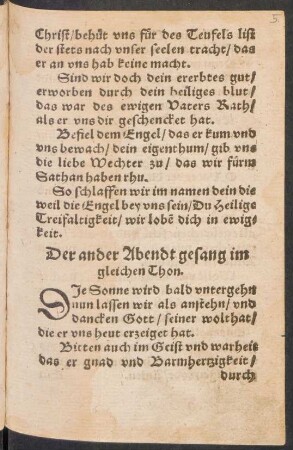 5
Christ/behüt vns für des Teufels list
der stets nach vnser seelen tracht/das
er an vns hab keine macht.
Sind wir doch dein ererbtes gut/
erworben durch dein heiliges blut/
das war des ewigen Vaters Rath/
als er vns dir geschencket hat.
Befiel dem Engel/das er kum vnd
vns bewach/dein eigenthum/gib vns
die liebe Wechter zu/das wir fürm
Sathan haben rhu.
So schlaffen wir im namen dein die
weil die Engel bey vns sein/Du Heilige
Treifaltigkeit/wir lobē dich in ewig-
keit.
Der ander Abendt gesang im
gleichen Thon.
DJe Sonne wird bald vntergehn
nun lassen wir als anstehn/vnd
dancken Gott/seiner wolthat/
die er vns heut erzeiget hat.
Bitten auch im Geist vnd warheit
das er gnad vnd Barmhertzigkeit/
durch